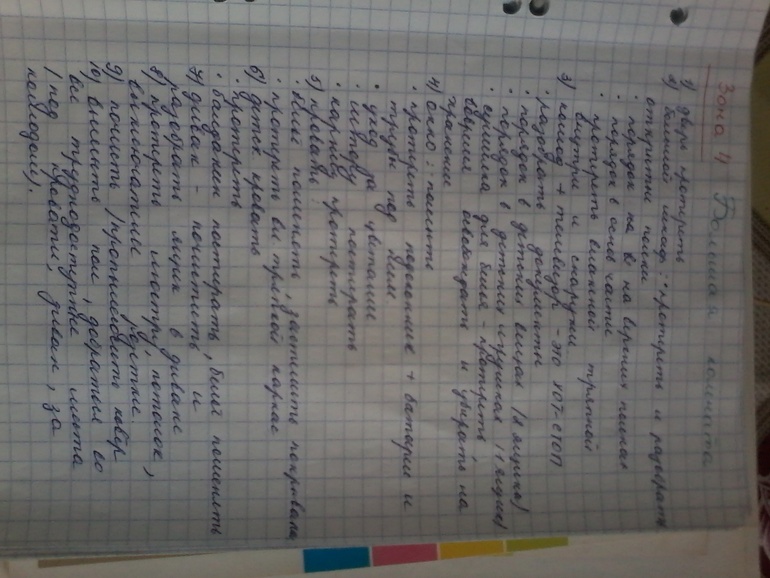 Зона 4 Большая комната
1) дверь протереть
2) большой шкаф: • протереть и разобрать
открытые полки
• порядок на верхних полках
• порядок в основ части
• протереть влажной тряпкой
внутри и снаружи.
3) комод + телевизор - это хот-спот
• разобрать документы
• порядок в детских вещах (2 ящика)
• порядок в детских игрушках (1 ящик)
• сушилка для белья - протереть,
вовремя освобождать и убирать на
хранение
4) окно: • помыть
• протереть подоконник + батарею и
трубы под ним
• уход за цветами
• штору постирать
• карниз протереть
5) кровать:
• бельё поменять, застелить покрывалом
• протереть вл тряпкой каркас
6) детск кровать
• протереть
• балдахин постирать, бельё поменять
7) диван - почистить и
разобрать ящик в диване
8) протереть люстру, потолок,
выключатели, розтки.
9) почисть /пропылесосить ковёр
10) вымыть пол, добраться со
все труднодоступные места
(под кроватью, диван, за
комодом).